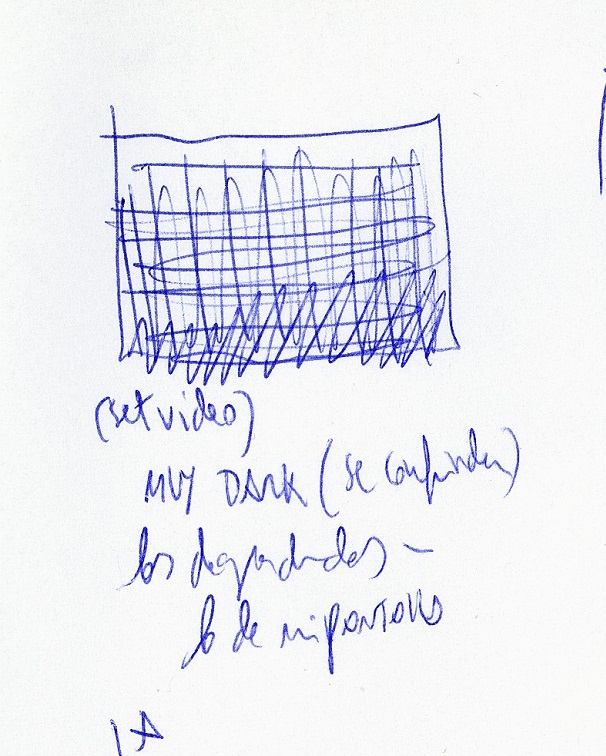 (set video)
MUY DARK (se confunden)
los degradados –
lo de mi pantalla